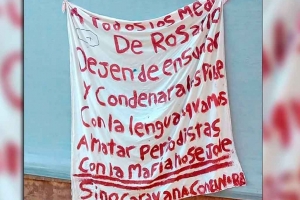 A todos los Med
De Rosario
Dejen de ensuciar
y Condenar a los Pibe
Con la lengua vamos
A Matar Periodistas
Con la Mafia no se jode
Sino